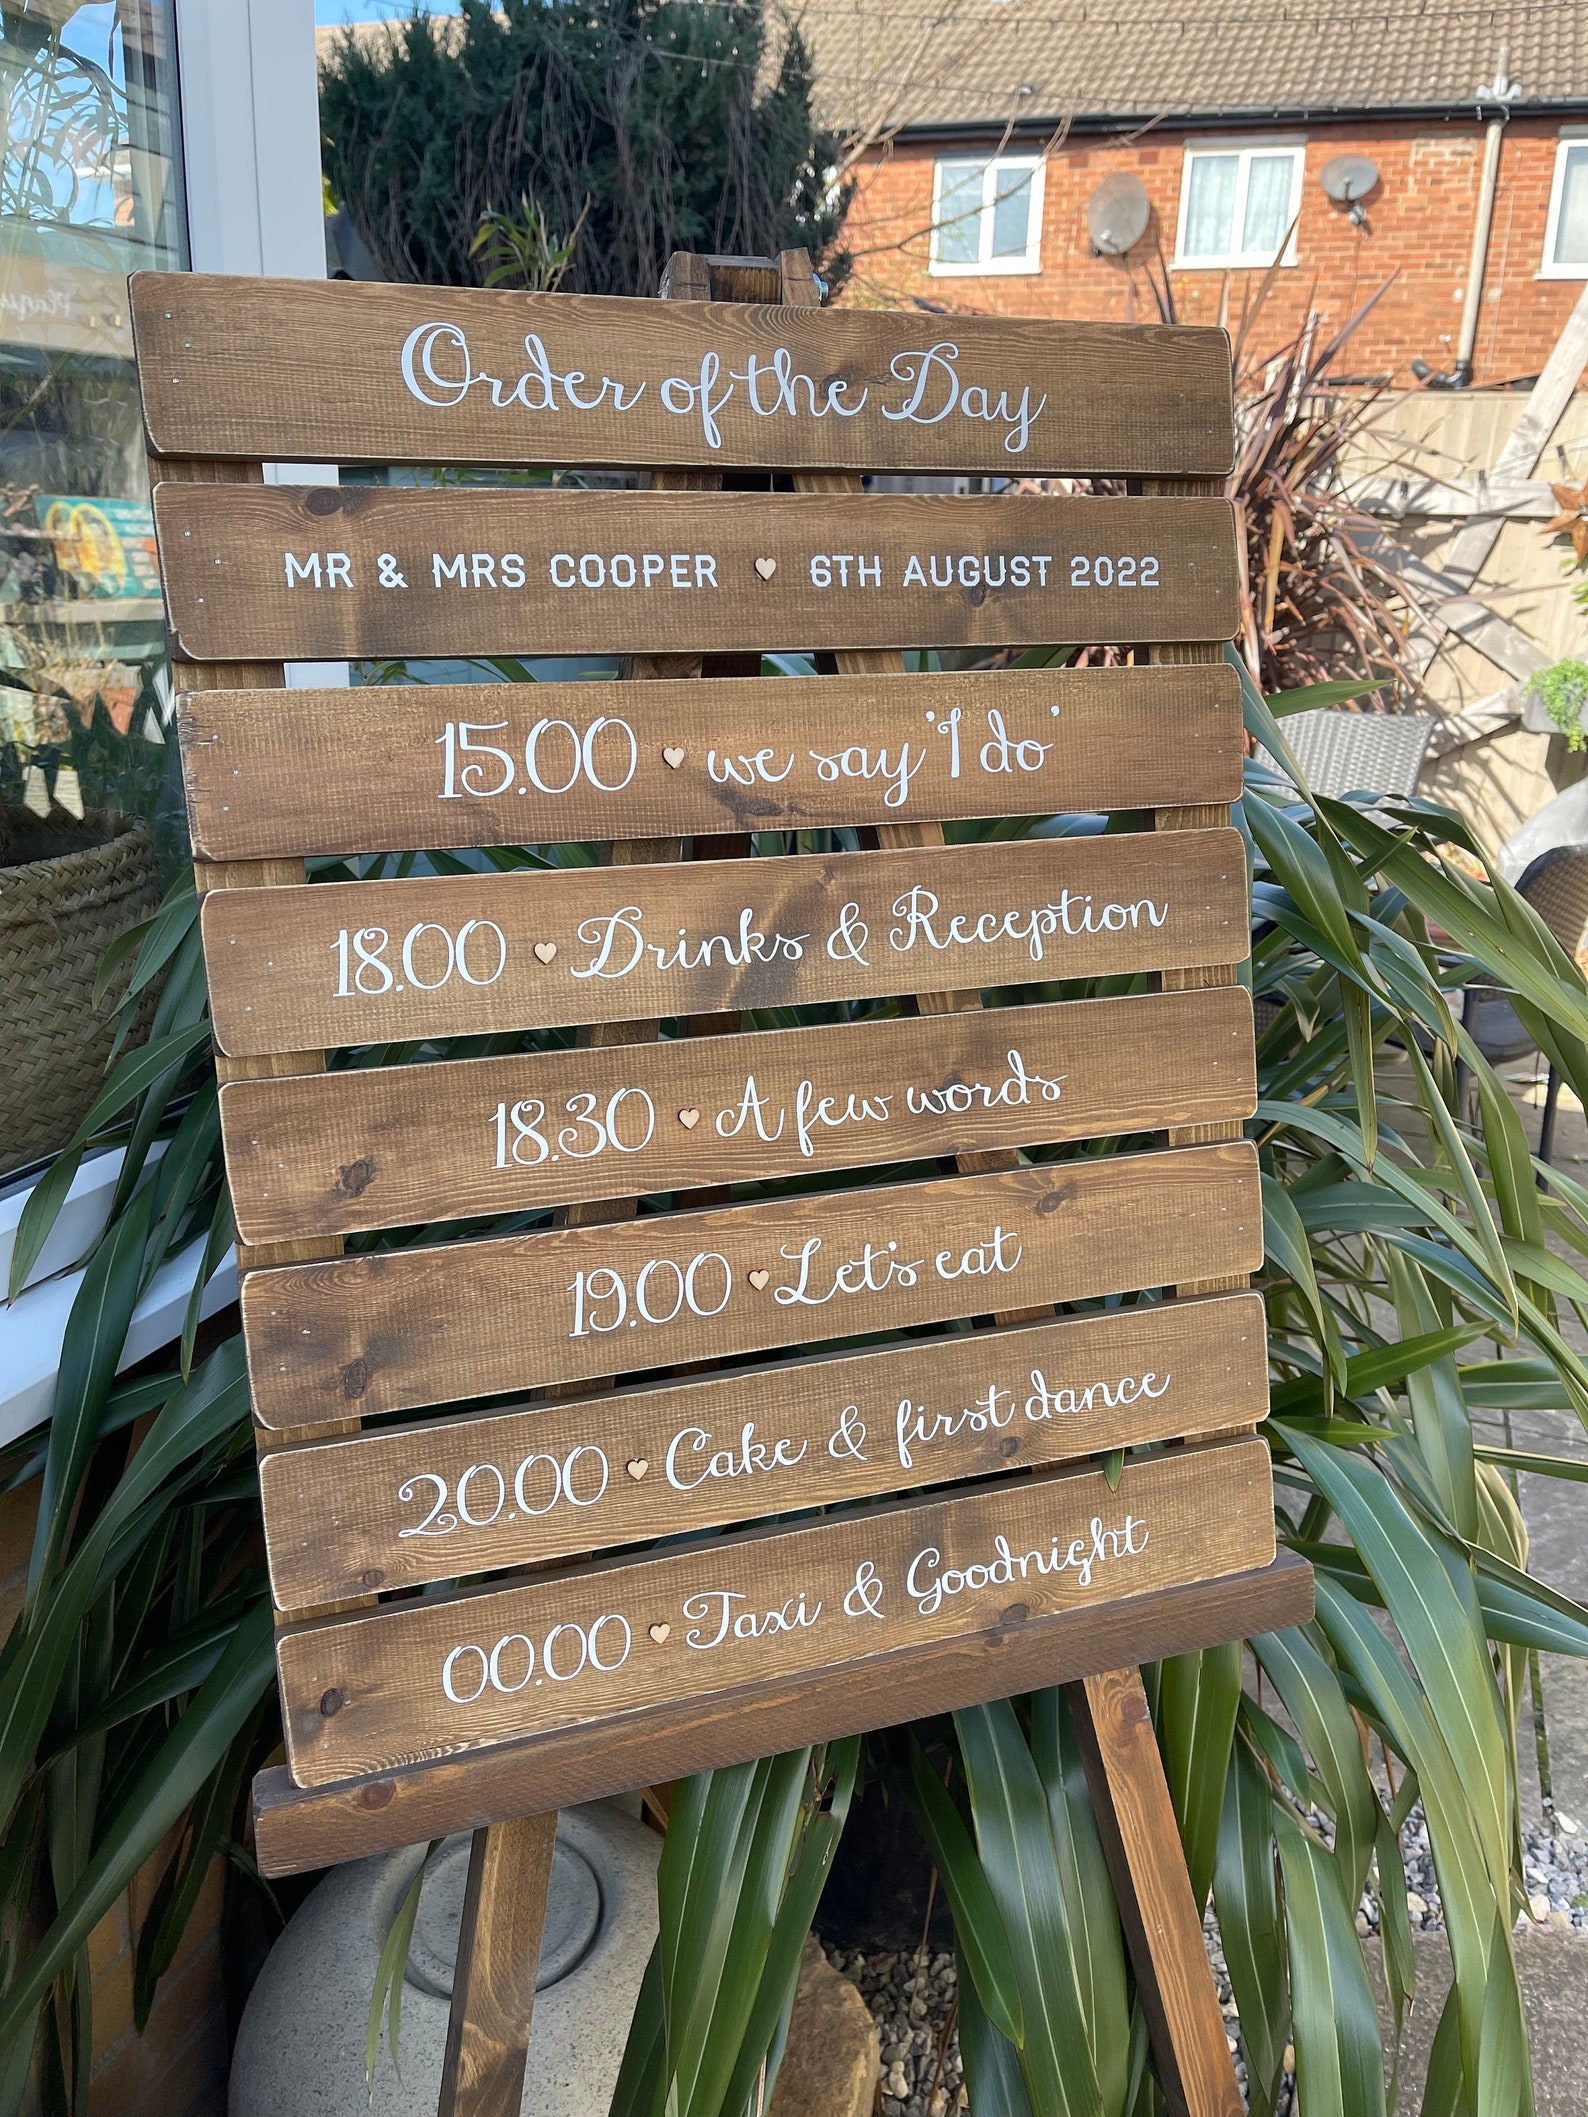 Order of the Day
MR & MRS COOPER 6TH AUGUST 2022
15.00 we say 'I do'
18.00 Drinks & Reception
18.30 A few words
19.00 Let's eat
20.00 Cake & first dance
00.00 Taxi & Goodnight